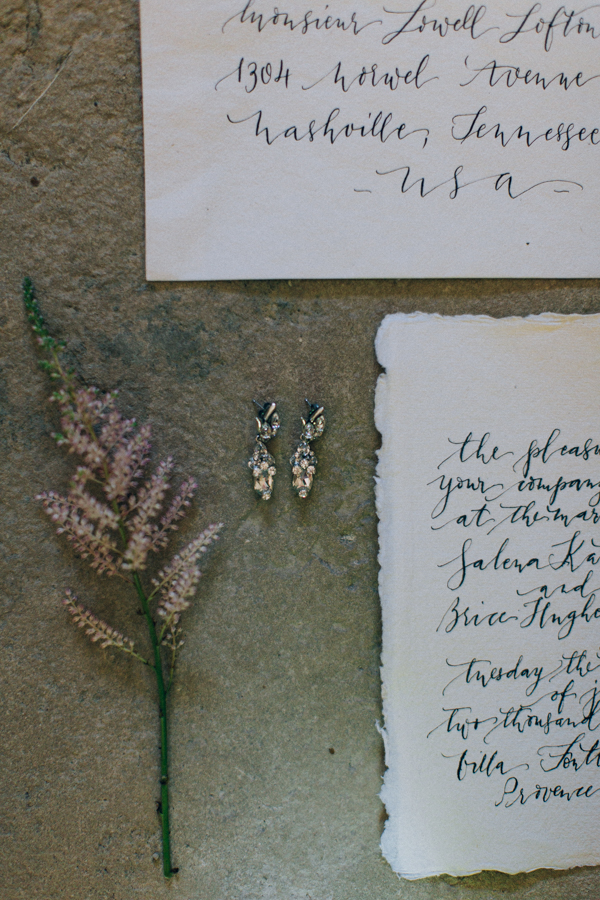 Monsieur Lowell Lofton
1304 Norwel Avenue
Nashville, Tennessee
- USA -
the pleasu
your company
at the mar
Salena Ka
and
Brice Hughe
tuesday the
of j
two thousand
Villa Font
Provence